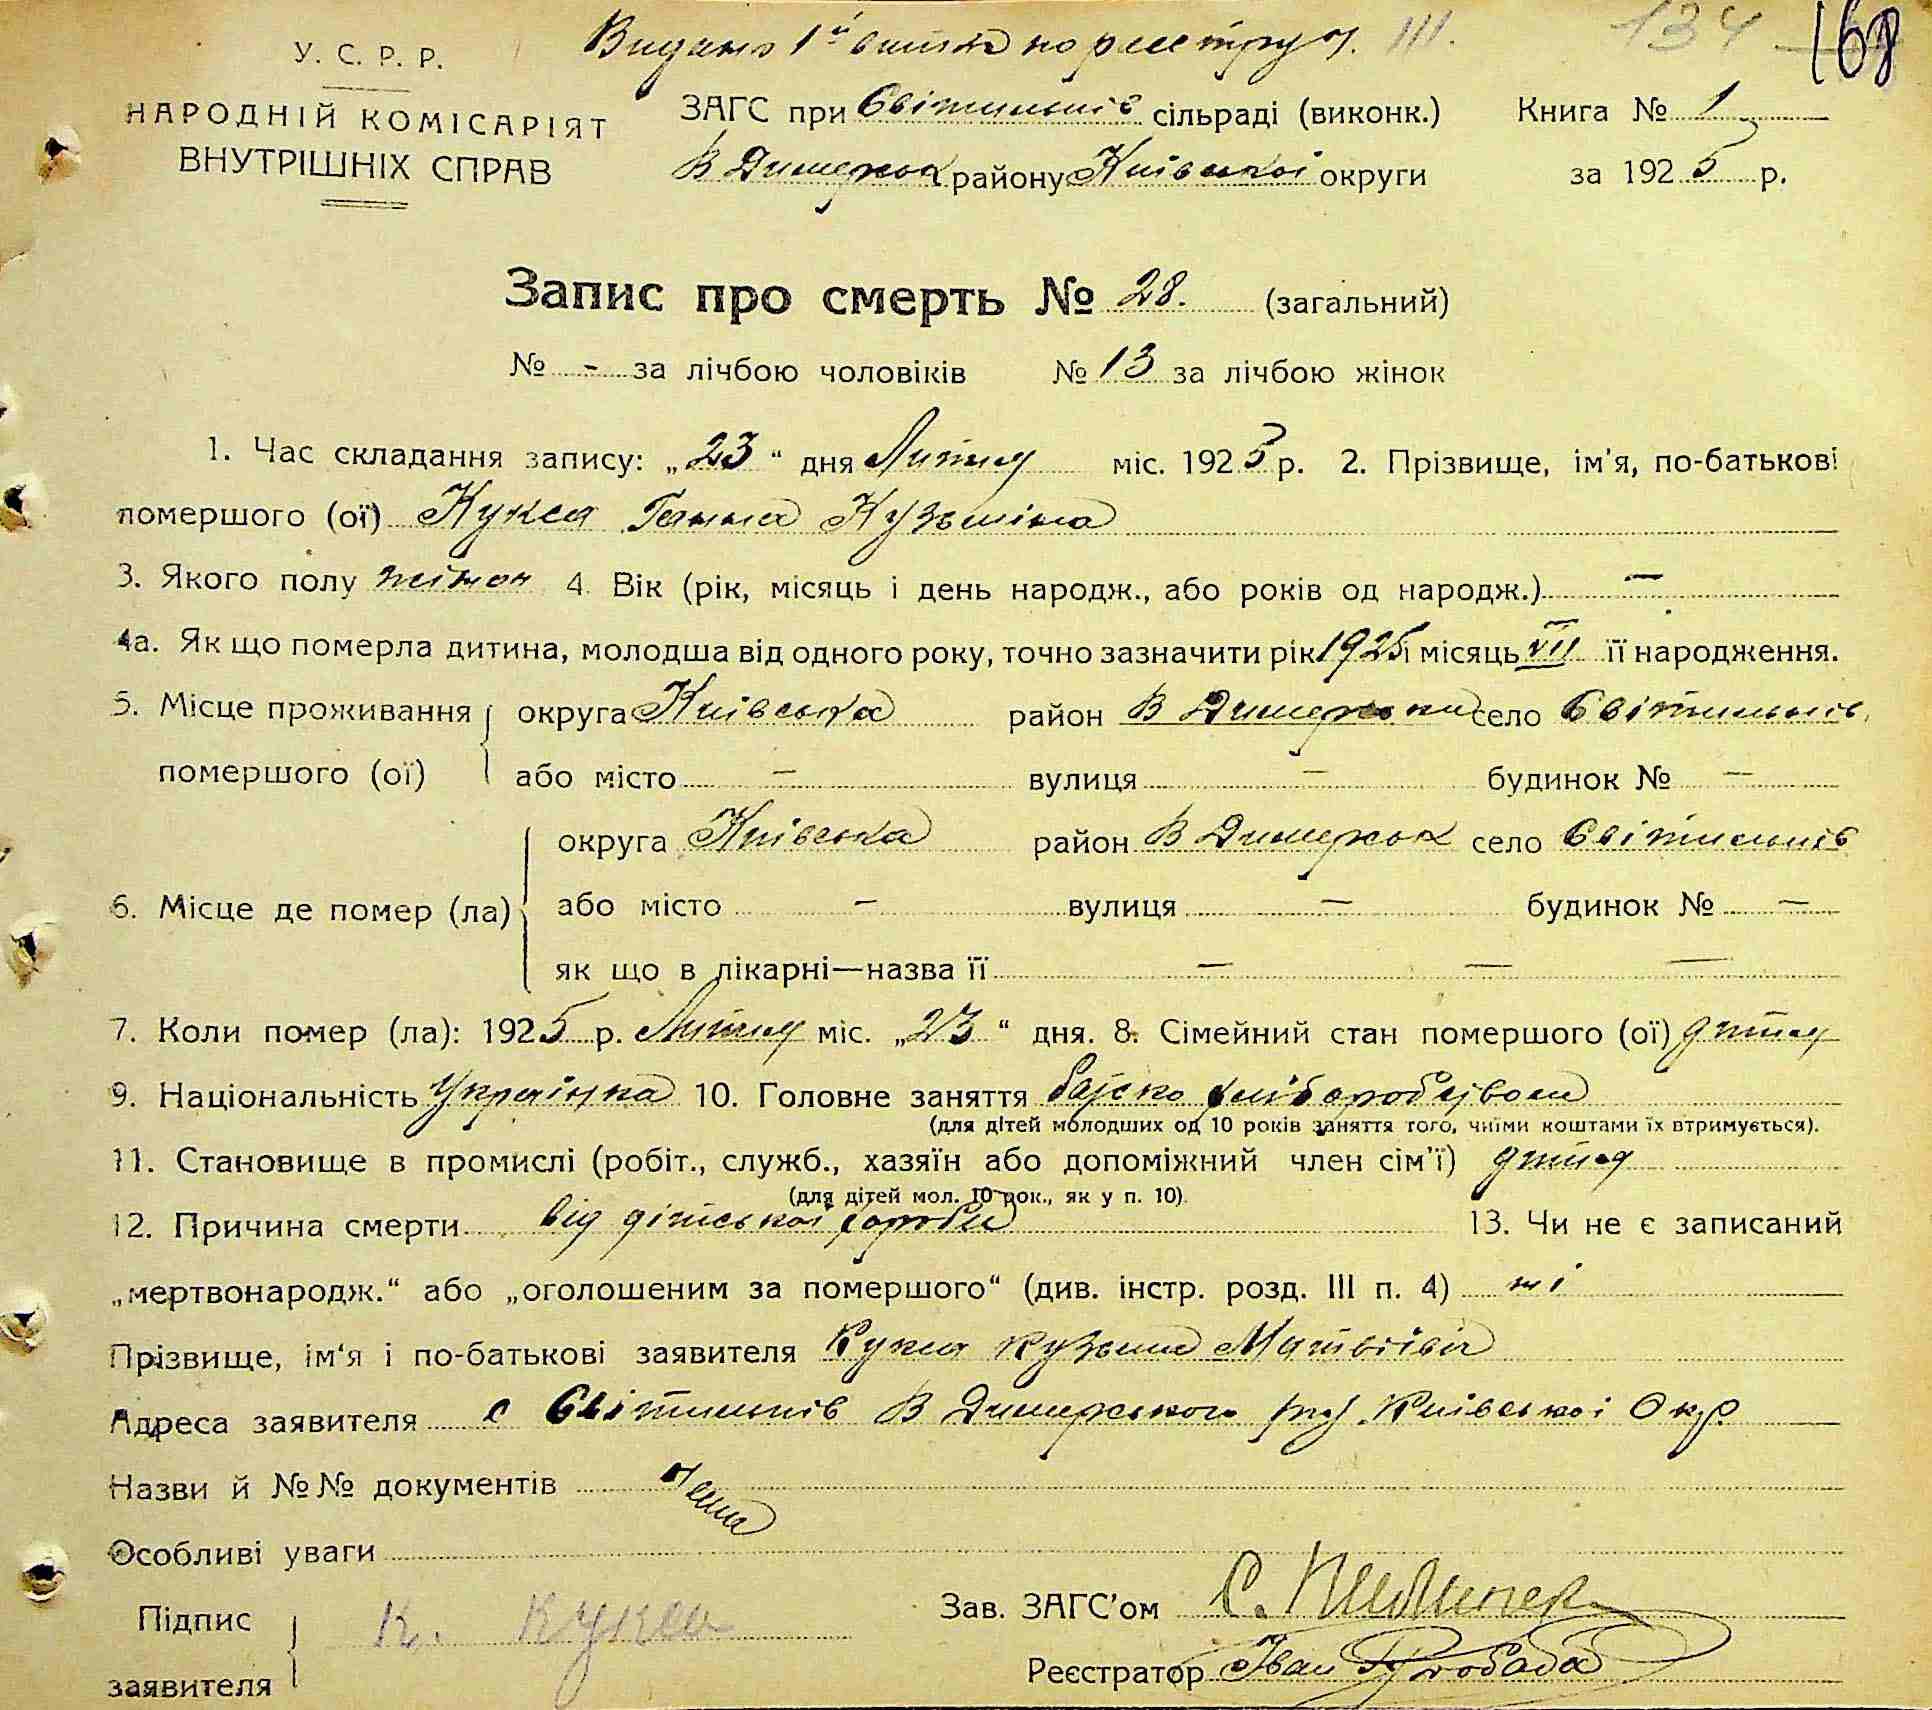 Видано 1й витяг по реєстру ч. III. 134 168
У. С. Р. Р.
НАРОДНІЙ КОМІСАРІЯТ
ВНУТРІШНІХ СПРАВ
ЗАГС при Світильнів сільраді (виконк.) Книга № 1
В Димерськ району Київської округи за 1925 р.
Запис про смерть № 28. (загальний)
№ - за лічбою чоловіків № 13 за лічбою жінок
1. Час складання запису: „23“ дня Липня міс. 1925 р. 2. Прізвище, ім'я, по-батькові
помершого (ої) Кукса Ганна Кузьміна
3. Якого полу жіноч 4. Вік (рік, місяць і день народж., або років од народж.) —
4а. Як що померла дитина, молодша від одного року, точно зазначити рік 1925 і місяць VII її народження.
5. Місце проживання округа Київська район В Димерський село Світильнів
помершого (ої) або місто — вулиця — будинок № —
округа Київська район В Димерськ село Світильнів
6. Місце де помер (ла) або місто — вулиця — будинок № —
як що в лікарні—назва її — — —
7. Коли помер (ла): 1925 р. Липня міс. „23“ дня. 8. Сімейний стан помершого (ої) дитя
9. Національність Українка 10. Головне заняття хліборобством
(для дітей молодших од 10 років заняття того, чиїми коштами їх втримується).
11. Становище в промислі (робіт., служб., хазяїн або допоміжний член сім'ї) дитя
(для дітей мол. 10 рок., як у п. 10).
12. Причина смерти від дітської хороби 13. Чи не є записаний
„мертвонародж.“ або „оголошеним за помершого“ (див. інстр. розд. III п. 4) ні
Прізвище, ім'я і по-батькові заявителя Кукса Кузьма Матвіїв
Адреса заявителя с Світильнів В Димерського рай Київської Окр
Назви й №№ документів нема
Особливі уваги
Підпис
заявителя К. Кукса
Зав. ЗАГС'ом С.
Реєстратор Іван